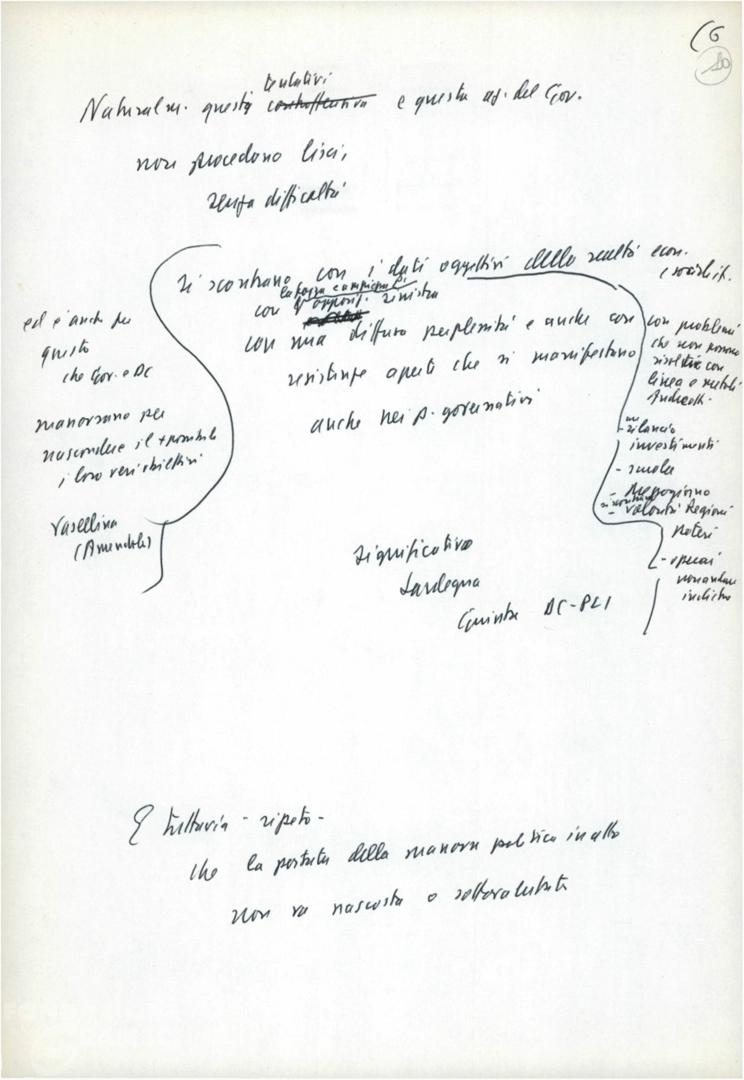 (6
20
tentativi
Naturalm. questi controffensiva e questa az. del Gov.
non procedono lisci,
senza difficoltà
si scontrano con i dati oggettivi della realtà econ.
e social. it.
con opposiz. sinistra
con una diffusa perplessità e anche con
resistenze aperte che si manifestano
anche nei p. governativi
ed è anche per
questo
che Gov. e DC
manovrano per
nascondere il + possibile
i loro veri obiettivi
Vasellina
(Amendola)
con problemi
che non possono
risolversi con
linea e metodi
Andreotti.
- rilancio
investimenti
- scuola
- Mezzogiorno
- volontà Regioni
poteri
- operai
Significativo
Sardegna
Giunta DC-PLI
E tuttavia - ripeto -
che la portata della manovra politica in atto
non va nascosta o sottovalutata